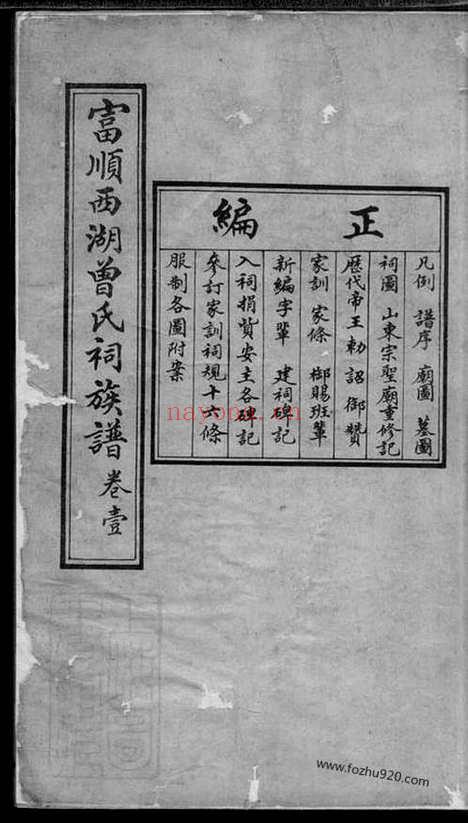 富順西湖曾氏祠族譜 卷壹
正編
凡例 譜序 廟圖 墓圖
祠圖 山東宗聖廟重修記
歷代帝王勅詔御贊
家訓 家條 御賜班輩
新編字輩 建祠碑記
入祠捐貲安主各碑記
參訂家訓祠規十六條
服制各圖附案
nayona.cn
www.fozhu920.com